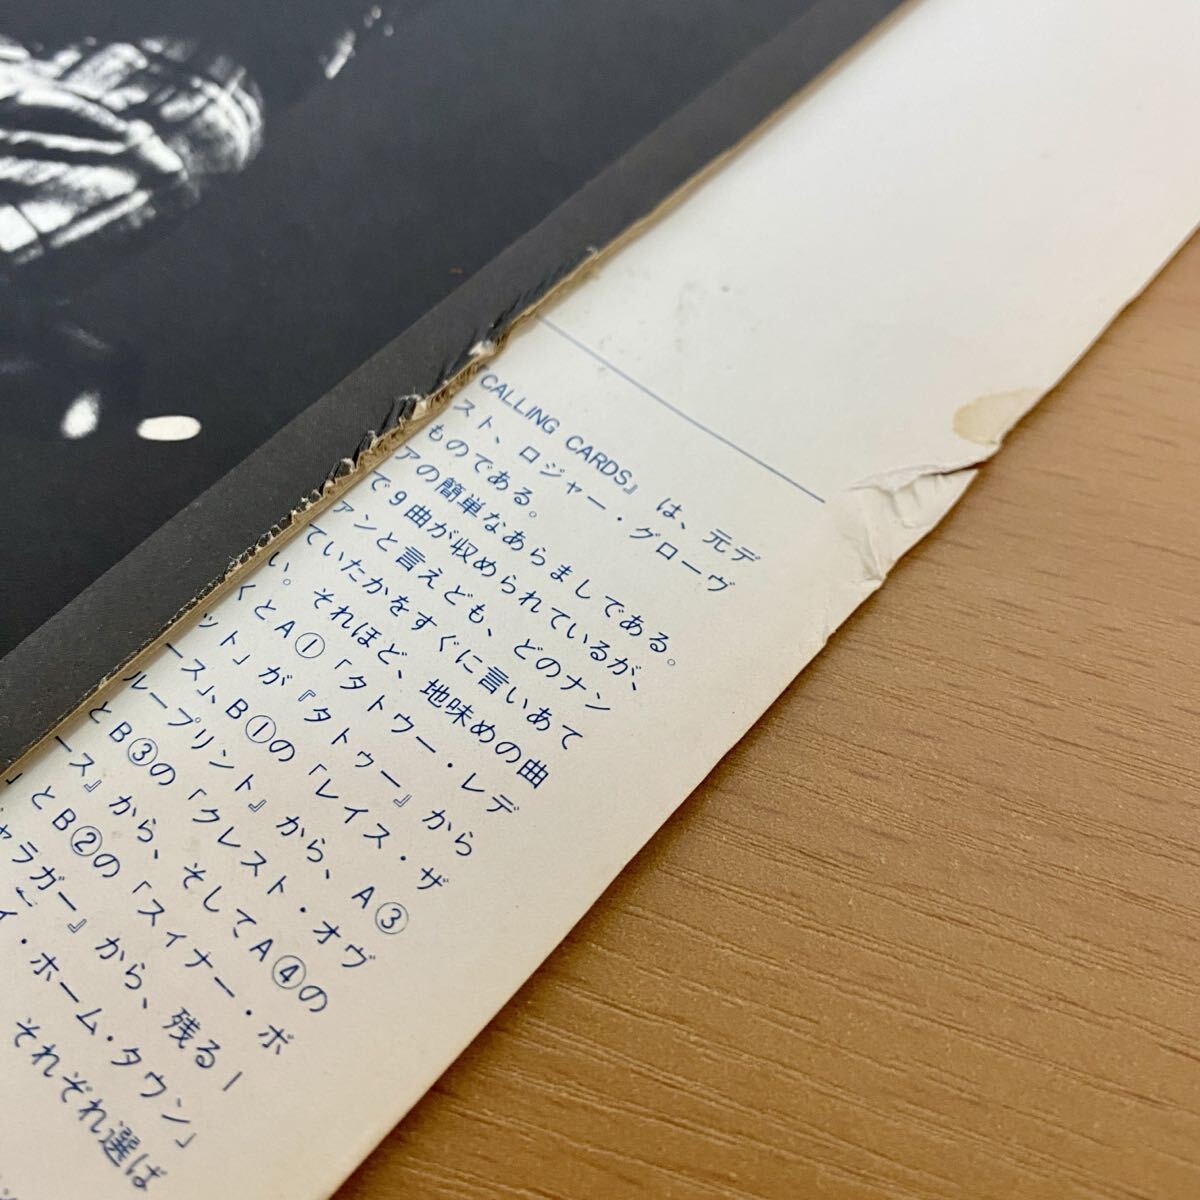 CALLING CARDS』は、元デ
スト、ロジャー・グローヴ
ものである。
アの簡単なあらましである。
で9曲が収められているが、
ァンと言えども、どのナン
ていたかをすぐに言いあて
い。それほど、地味めの曲
くとA①「タトゥー・レデ
ット」が『タトゥー』から
ース」、B①の「レイス・ザ
ループリント』から、A③
とB③の「クレスト・オヴ
ース』から、そしてA④の
」とB②の「スィナー・ボ
ャラガー』から、残る1
イ・ホーム・タウン」
それぞれ選ば